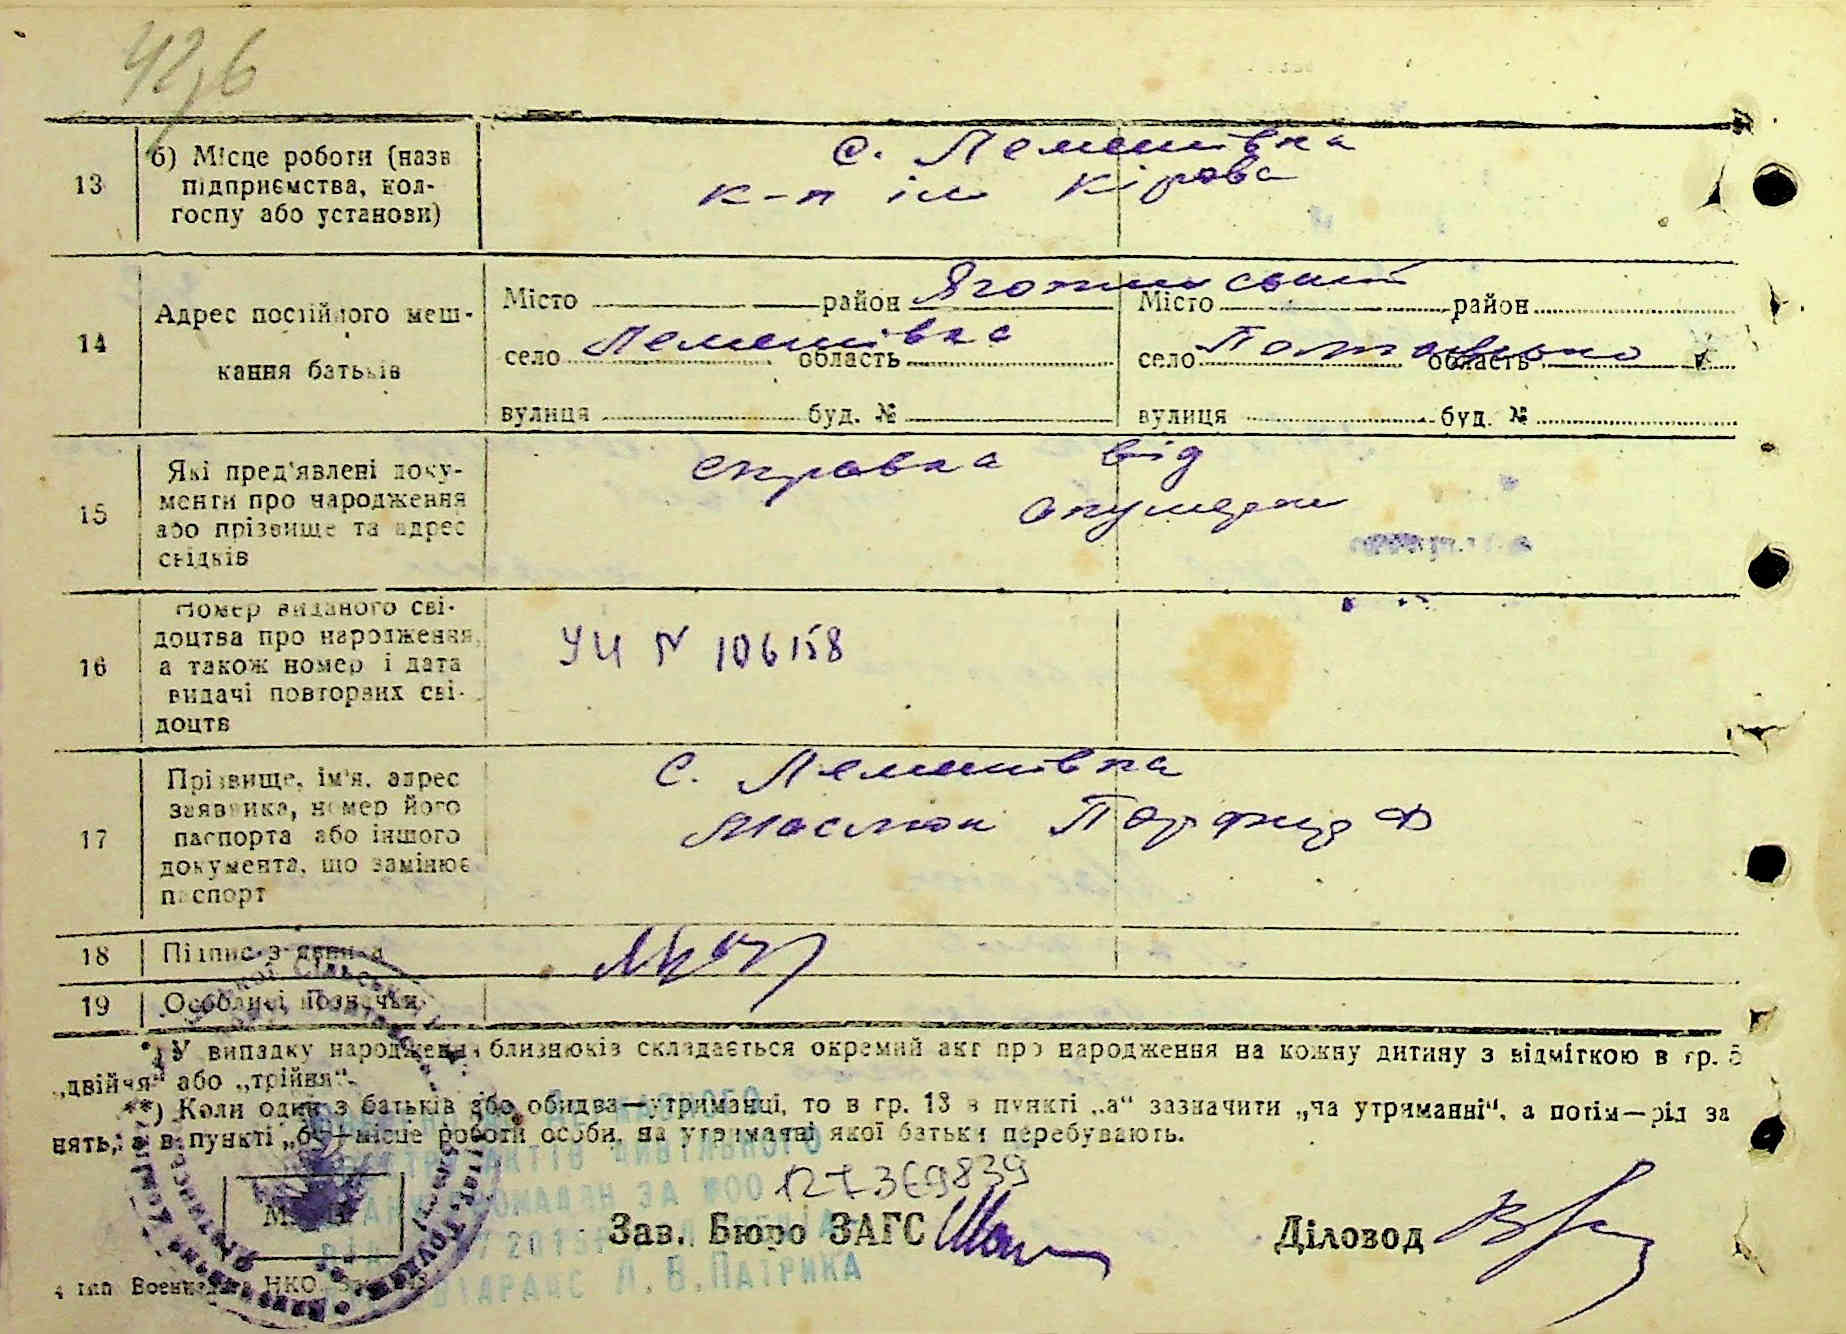 42,б
с. Лемешівка
13
б) Місце роботи (назв
підприємства, кол-
госпу або установи)
к-п ім Кірова
14
Адрес постійного меш-
кання батьків
Місто район Яготинський Місто район
село Лемешівка область село Полтавська область
вулиця буд. № вулиця буд. №
15
Які пред'явлені доку-
менти про народження
або прізвище та адрес
свідків
справка від
акушерки
16
Номер виданого сві-
доцтва про народження,
а також номер і дата
видачі повторних сві-
доцтв
УЧ N 106158
17
Прізвище, ім'я, адрес
заявника, номер його
паспорта або іншого
документа, що замінює
паспорт
с. Лемешівка
Маслюк
18
Підпис заявника
19
Особливі позначки
*) У випадку народження близнюків складається окремий акт про народження на кожну дитину з відміткою в гр. 5
„двійня" або „трійня".
**) Коли один з батьків або обидва—утриманці, то в гр. 13 в пункті „а" зазначити „на утриманні", а потім—рід за
нять, а в пункті „б"—місце роботи особи, на утриманні якої батьки перебувають.
127369839
Зав. Бюро ЗАГС
Діловод
Л. В. ПАТРИКА